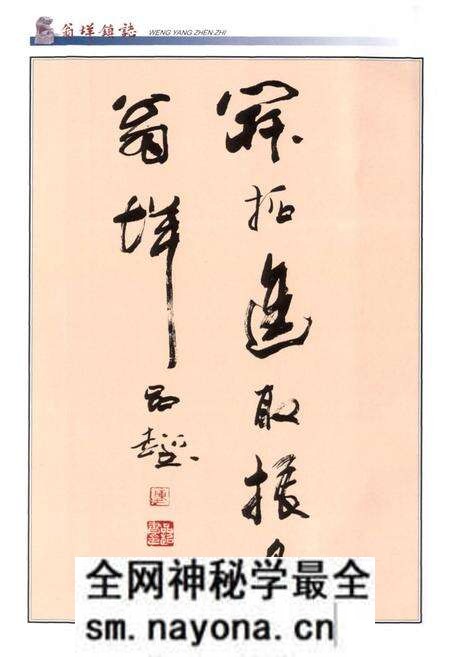 翁垟鎮誌 WENG YANG ZHEN ZHI
開拓進取振
翁垟
全网神秘学最全
sm.nayona.cn